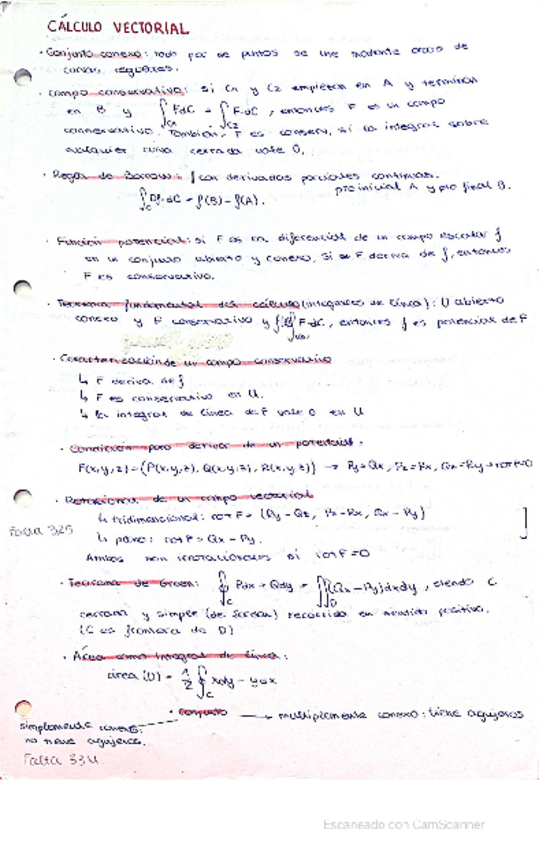 CÁLCULO VECTORIAL
· Conjunto conexo: todo par de puntos se une mediante arcos de
curvas regulares.
· Campo conservativo: si C1 y C2 empiezan en A y terminan
en B y ∫C1 FdC = ∫C2 F·dC, entonces F es un campo
conservativo. También, F es conserv, si la integral sobre
cualquier curva cerrada vale 0.
· Regla de Barrow: f con derivadas parciales continuas.
pto inicial A y pto final B.
∫C ∇f·dC = f(B) - f(A).
· Función potencial: si F es la diferencial de un campo escalar f
en un conjunto abierto y conexo, si F deriva de f, entonces
F es conservativo.
· Teorema fundamental del cálculo (integrales de línea): U abierto
conexo y F conservativo y F·dC, entonces f es potencial de F
· Caracterización de un campo conservativo
↳ F deriva de f
↳ F es conservativo en U.
↳ la integral de línea de F vale 0 en U
· Condición para derivar de un potencial.
F(x,y,z) = (P(x,y,z), Q(x,y,z), R(x,y,z)) →
· Rotacional de un campo vectorial
↳ tridimensional: rot F =
Falta 325
↳ plano: rot F = Qx - Py.
Ambos son irrotacionales si rot F = 0
· Teorema de Green: ∮C Pdx + Qdy = ∬D (Qx - Py)dxdy, siendo C
cerrada y simple (de Jordan) recorrida en sentido positivo.
(C es frontera de D)
· Área como integral de línea:
área (D) = 1/2 ∮C xdy - ydx
· Conjunto → multiplemente conexo: tiene agujeros
simplemente conexo:
no tiene agujeros.
Falta 334
Escaneado con CamScanner